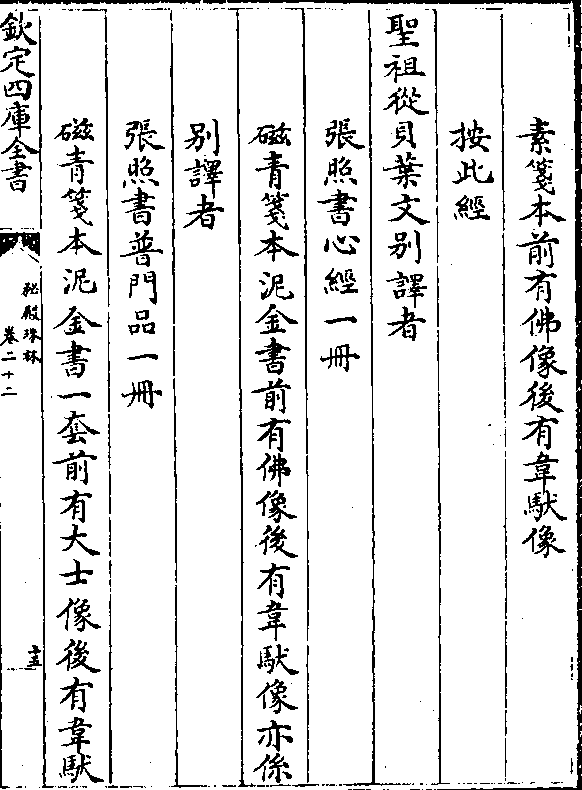 素箋本前有佛像後有韋馱像
按此經
聖祖從貝葉文別譯者
張照書心經一冊
磁青箋本泥金書前有佛像後有韋馱像亦係
別譯者
張照書普門品一冊
磁青箋本泥金書一套前有大士像後有韋馱
欽定四庫全書
秘殿珠林
卷二十二
十五